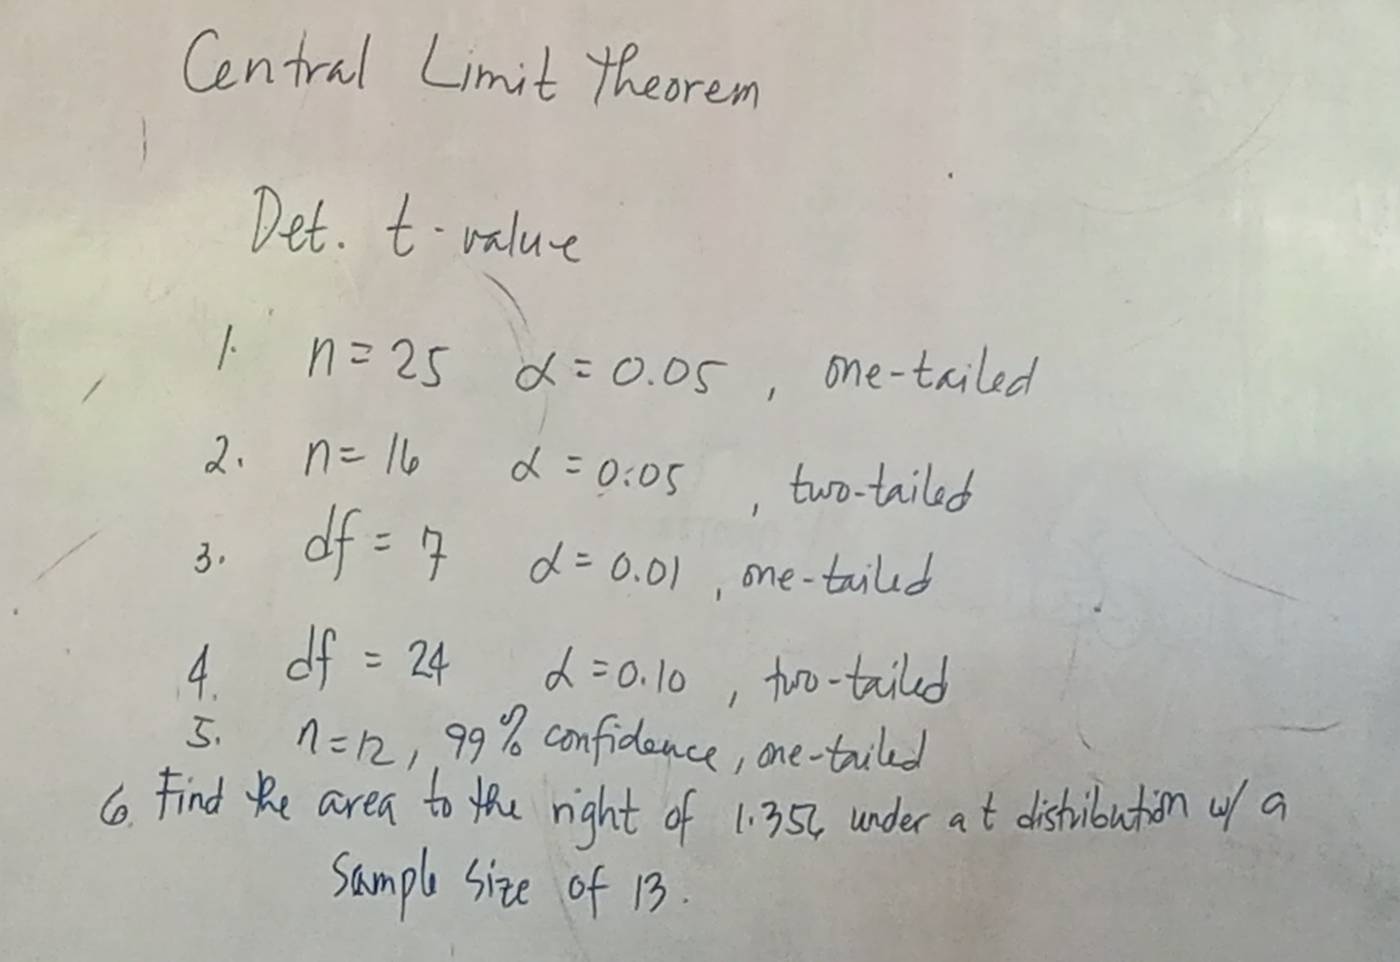 Central Limit Theorem
Det. t-value
1. n = 25 α = 0.05, one-tailed
2. n = 16 α = 0.05, two-tailed
3. df = 7 α = 0.01, one-tailed
4. df = 24 α = 0.10, two-tailed
5. n = 12, 99% confidence, one-tailed
6. Find the area to the right of 1.356 under a t distribution w/ a
sample size of 13.